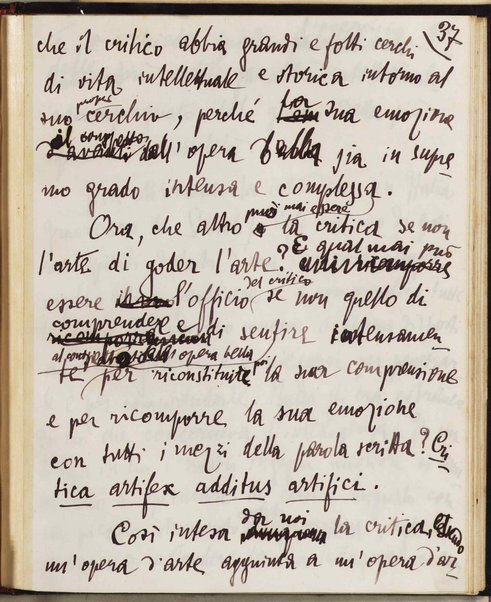 37
che il critico abbia grandi e folti cerchi
di vita intellettuale e storica intorno al
suo proprio cerchio, perché la sua emozione
al cospetto
dell'opera bella sia in supre-
mo grado intensa e complessa.
Ora, che altro può mai essere la critica se non
l'arte di goder l'arte? E qual mai può
essere l'officio del critico se non quello di
comprendere e di sentire intensamen-
al cospetto dell'opera bella
te per ricostituire poi la sua comprensione
e per ricomporre la sua emozione
con tutti i mezzi della parola scritta? Cri-
tica artifex additus artifici.
Così intesa da noi la critica, essendo
un'opera d'arte aggiunta a un'opera d'ar-